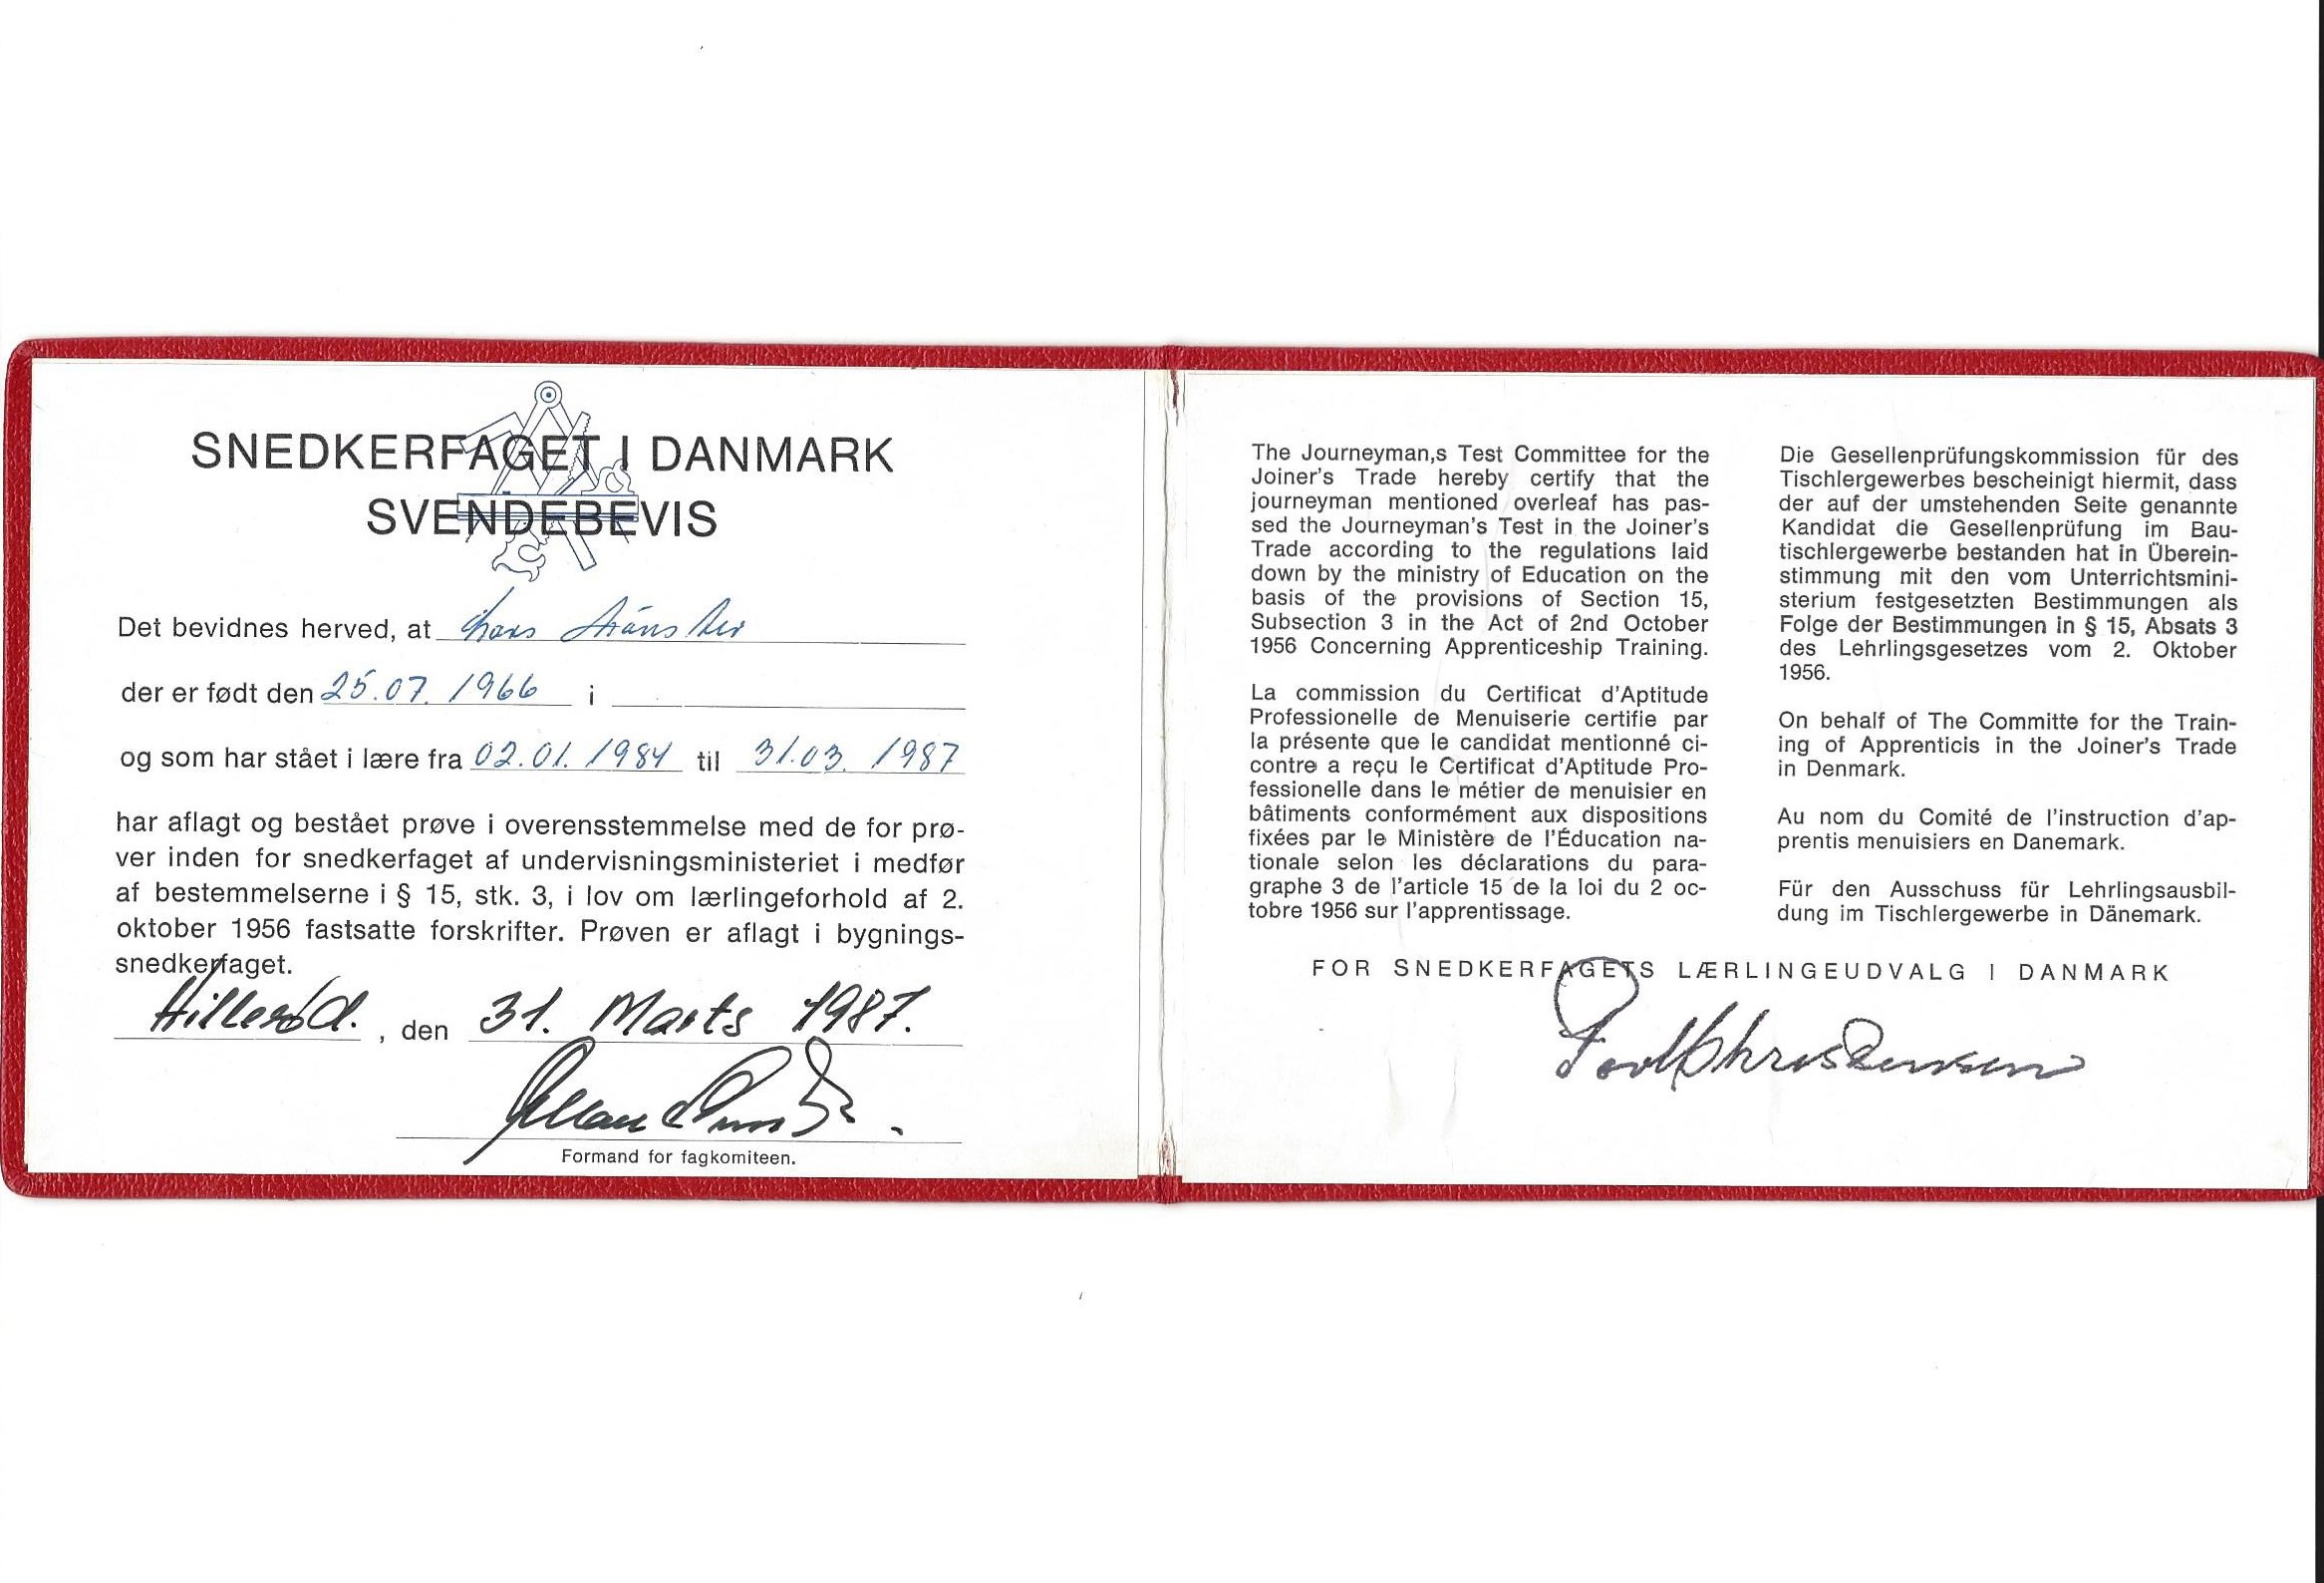 SNEDKERFAGET I DANMARK
SVENDEBEVIS
Det bevidnes herved, at
der er født den 25.07. 1966 i
og som har stået i lære fra 02.01. 1984 til 31.03. 1987
har aflagt og bestået prøve i overensstemmelse med de for prø-
ver inden for snedkerfaget af undervisningsministeriet i medfør
af bestemmelserne i § 15, stk. 3, i lov om lærlingeforhold af 2.
oktober 1956 fastsatte forskrifter. Prøven er aflagt i bygnings-
snedkerfaget.
Hillerød. , den 31. Marts 1987.
Formand for fagkomiteen.
The Journeyman,s Test Committee for the
Joiner's Trade hereby certify that the
journeyman mentioned overleaf has pas-
sed the Journeyman's Test in the Joiner's
Trade according to the regulations laid
down by the ministry of Education on the
basis of the provisions of Section 15,
Subsection 3 in the Act of 2nd October
1956 Concerning Apprenticeship Training.
La commission du Certificat d'Aptitude
Professionelle de Menuiserie certifie par
la présente que le candidat mentionné ci-
contre a reçu le Certificat d'Aptitude Pro-
fessionelle dans le métier de menuisier en
bâtiments conformément aux dispositions
fixées par le Ministère de l'Éducation na-
tionale selon les déclarations du para-
graphe 3 de l'article 15 de la loi du 2 oc-
tobre 1956 sur l'apprentissage.
Die Gesellenprüfungskommission für des
Tischlergewerbes bescheinigt hiermit, dass
der auf der umstehenden Seite genannte
Kandidat die Gesellenprüfung im Bau-
tischlergewerbe bestanden hat in Überein-
stimmung mit den vom Unterrichtsmini-
sterium festgesetzten Bestimmungen als
Folge der Bestimmungen in § 15, Absats 3
des Lehrlingsgesetzes vom 2. Oktober
1956.
On behalf of The Committe for the Train-
ing of Apprenticis in the Joiner's Trade
in Denmark.
Au nom du Comité de l'instruction d'ap-
prentis menuisiers en Danemark.
Für den Ausschuss für Lehrlingsausbil-
dung im Tischlergewerbe in Dänemark.
FOR SNEDKERFAGETS LÆRLINGEUDVALG I DANMARK